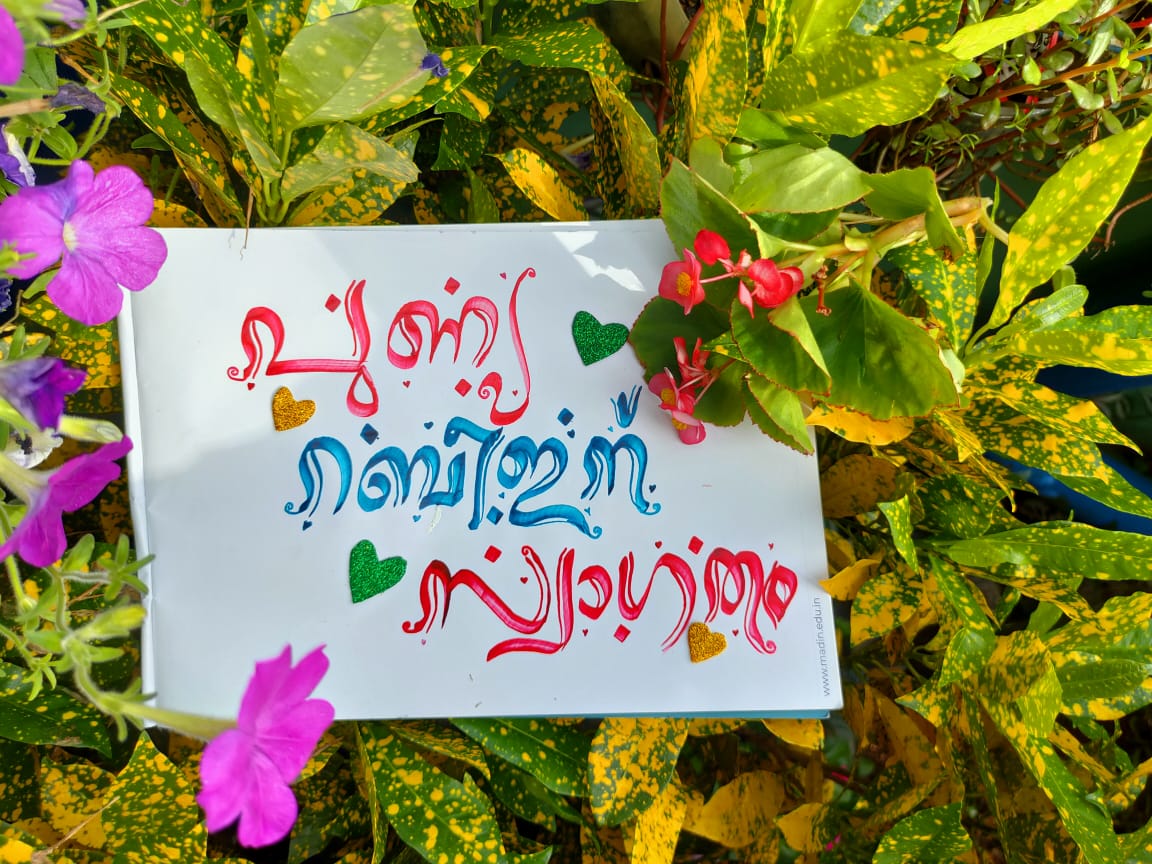 പുണ്യ
റബീഇന്
സ്വാഗതം
www.madin.edu.in